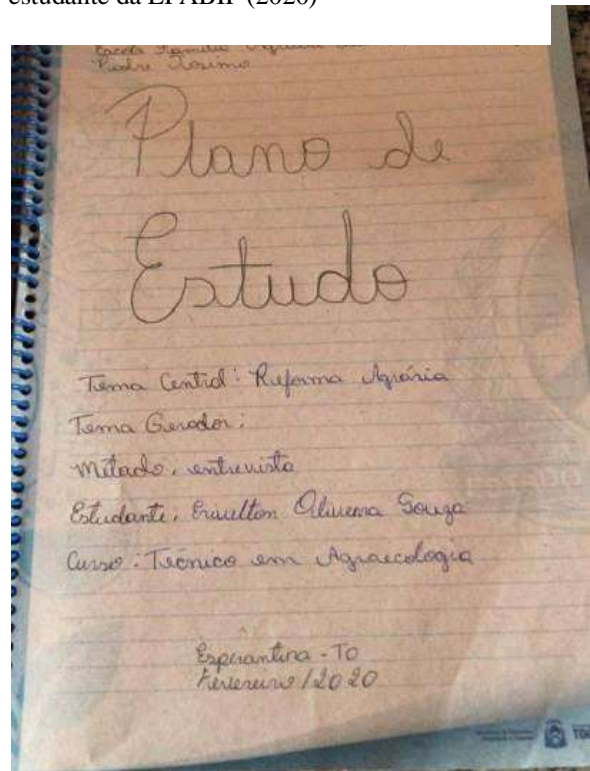 estudante da EFABIP (2020)
Escola Família Agrícola
Padre Josimo
Plano de
Estudo
Tema Central: Reforma Agrária
Tema Gerador:
Método: entrevista
Estudante: Oliveira Souza
Curso: Técnico em Agroecologia
Esperantina - TO
Fevereiro / 2020